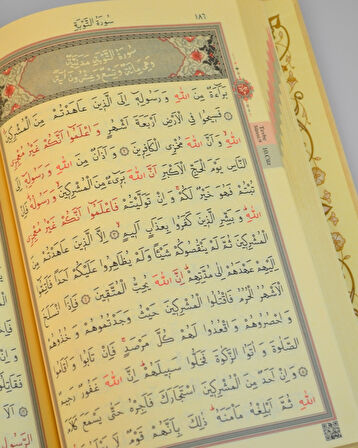 سورة التوبة ١٨٦
سورة التوبة مدنية
وهي مائة وتسع وعشرون آية
بَرَاءَةٌ مِنَ اللهِ وَرَسُولِهِ إِلَى الَّذِينَ عَاهَدْتُمْ مِنَ الْمُشْرِكِينَ
فَسِيحُوا فِي الْأَرْضِ أَرْبَعَةَ أَشْهُرٍ وَاعْلَمُوا أَنَّكُمْ غَيْرُ مُعْجِزِي
اللهِ وَأَنَّ اللهَ مُخْزِي الْكَافِرِينَ وَأَذَانٌ مِنَ اللهِ وَرَسُولِهِ إِلَى
النَّاسِ يَوْمَ الْحَجِّ الْأَكْبَرِ أَنَّ اللهَ بَرِيءٌ مِنَ الْمُشْرِكِينَ وَرَسُولُهُ فَإِنْ
تُبْتُمْ فَهُوَ خَيْرٌ لَكُمْ وَإِنْ تَوَلَّيْتُمْ فَاعْلَمُوا أَنَّكُمْ غَيْرُ مُعْجِزِي
اللهِ وَبَشِّرِ الَّذِينَ كَفَرُوا بِعَذَابٍ أَلِيمٍ إِلَّا الَّذِينَ عَاهَدْتُمْ مِنَ
الْمُشْرِكِينَ ثُمَّ لَمْ يَنْقُصُوكُمْ شَيْئًا وَلَمْ يُظَاهِرُوا عَلَيْكُمْ أَحَدًا فَأَتِمُّوا
إِلَيْهِمْ عَهْدَهُمْ إِلَى مُدَّتِهِمْ إِنَّ اللهَ يُحِبُّ الْمُتَّقِينَ فَإِذَا انْسَلَخَ
الْأَشْهُرُ الْحُرُمُ فَاقْتُلُوا الْمُشْرِكِينَ حَيْثُ وَجَدْتُمُوهُمْ وَخُذُوهُمْ
وَاحْصُرُوهُمْ وَاقْعُدُوا لَهُمْ كُلَّ مَرْصَدٍ فَإِنْ تَابُوا وَأَقَامُوا
الصَّلٰوةَ وَآتَوُا الزَّكٰوةَ فَخَلُّوا سَبِيلَهُمْ إِنَّ اللهَ غَفُورٌ رَحِيمٌ
وَإِنْ أَحَدٌ مِنَ الْمُشْرِكِينَ اسْتَجَارَكَ فَأَجِرْهُ حَتَّى يَسْمَعَ كَلَامَ
اللهِ ثُمَّ أَبْلِغْهُ مَأْمَنَهُ ذٰلِكَ بِأَنَّهُمْ قَوْمٌ لَا